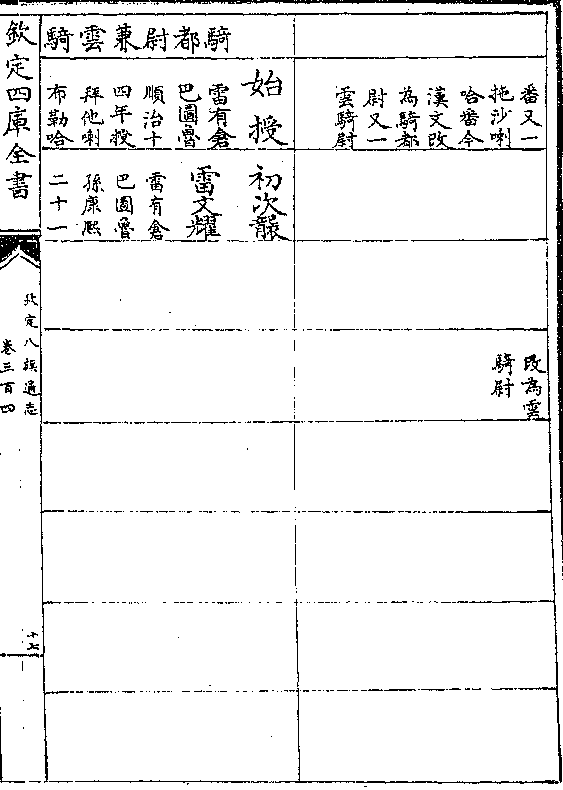 番又一
拖沙喇
哈番今
漢文改
為騎都
尉又一
雲騎尉
改為雲
騎尉
騎都尉兼雲騎
始授
雷有倉
巴圖魯
順治十
四年授
拜他喇
布勒哈
初次襲
雷文耀
雷有倉
巴圖魯
孫康熙
二十一
欽定四庫全書
欽定八旗通志
卷三百四